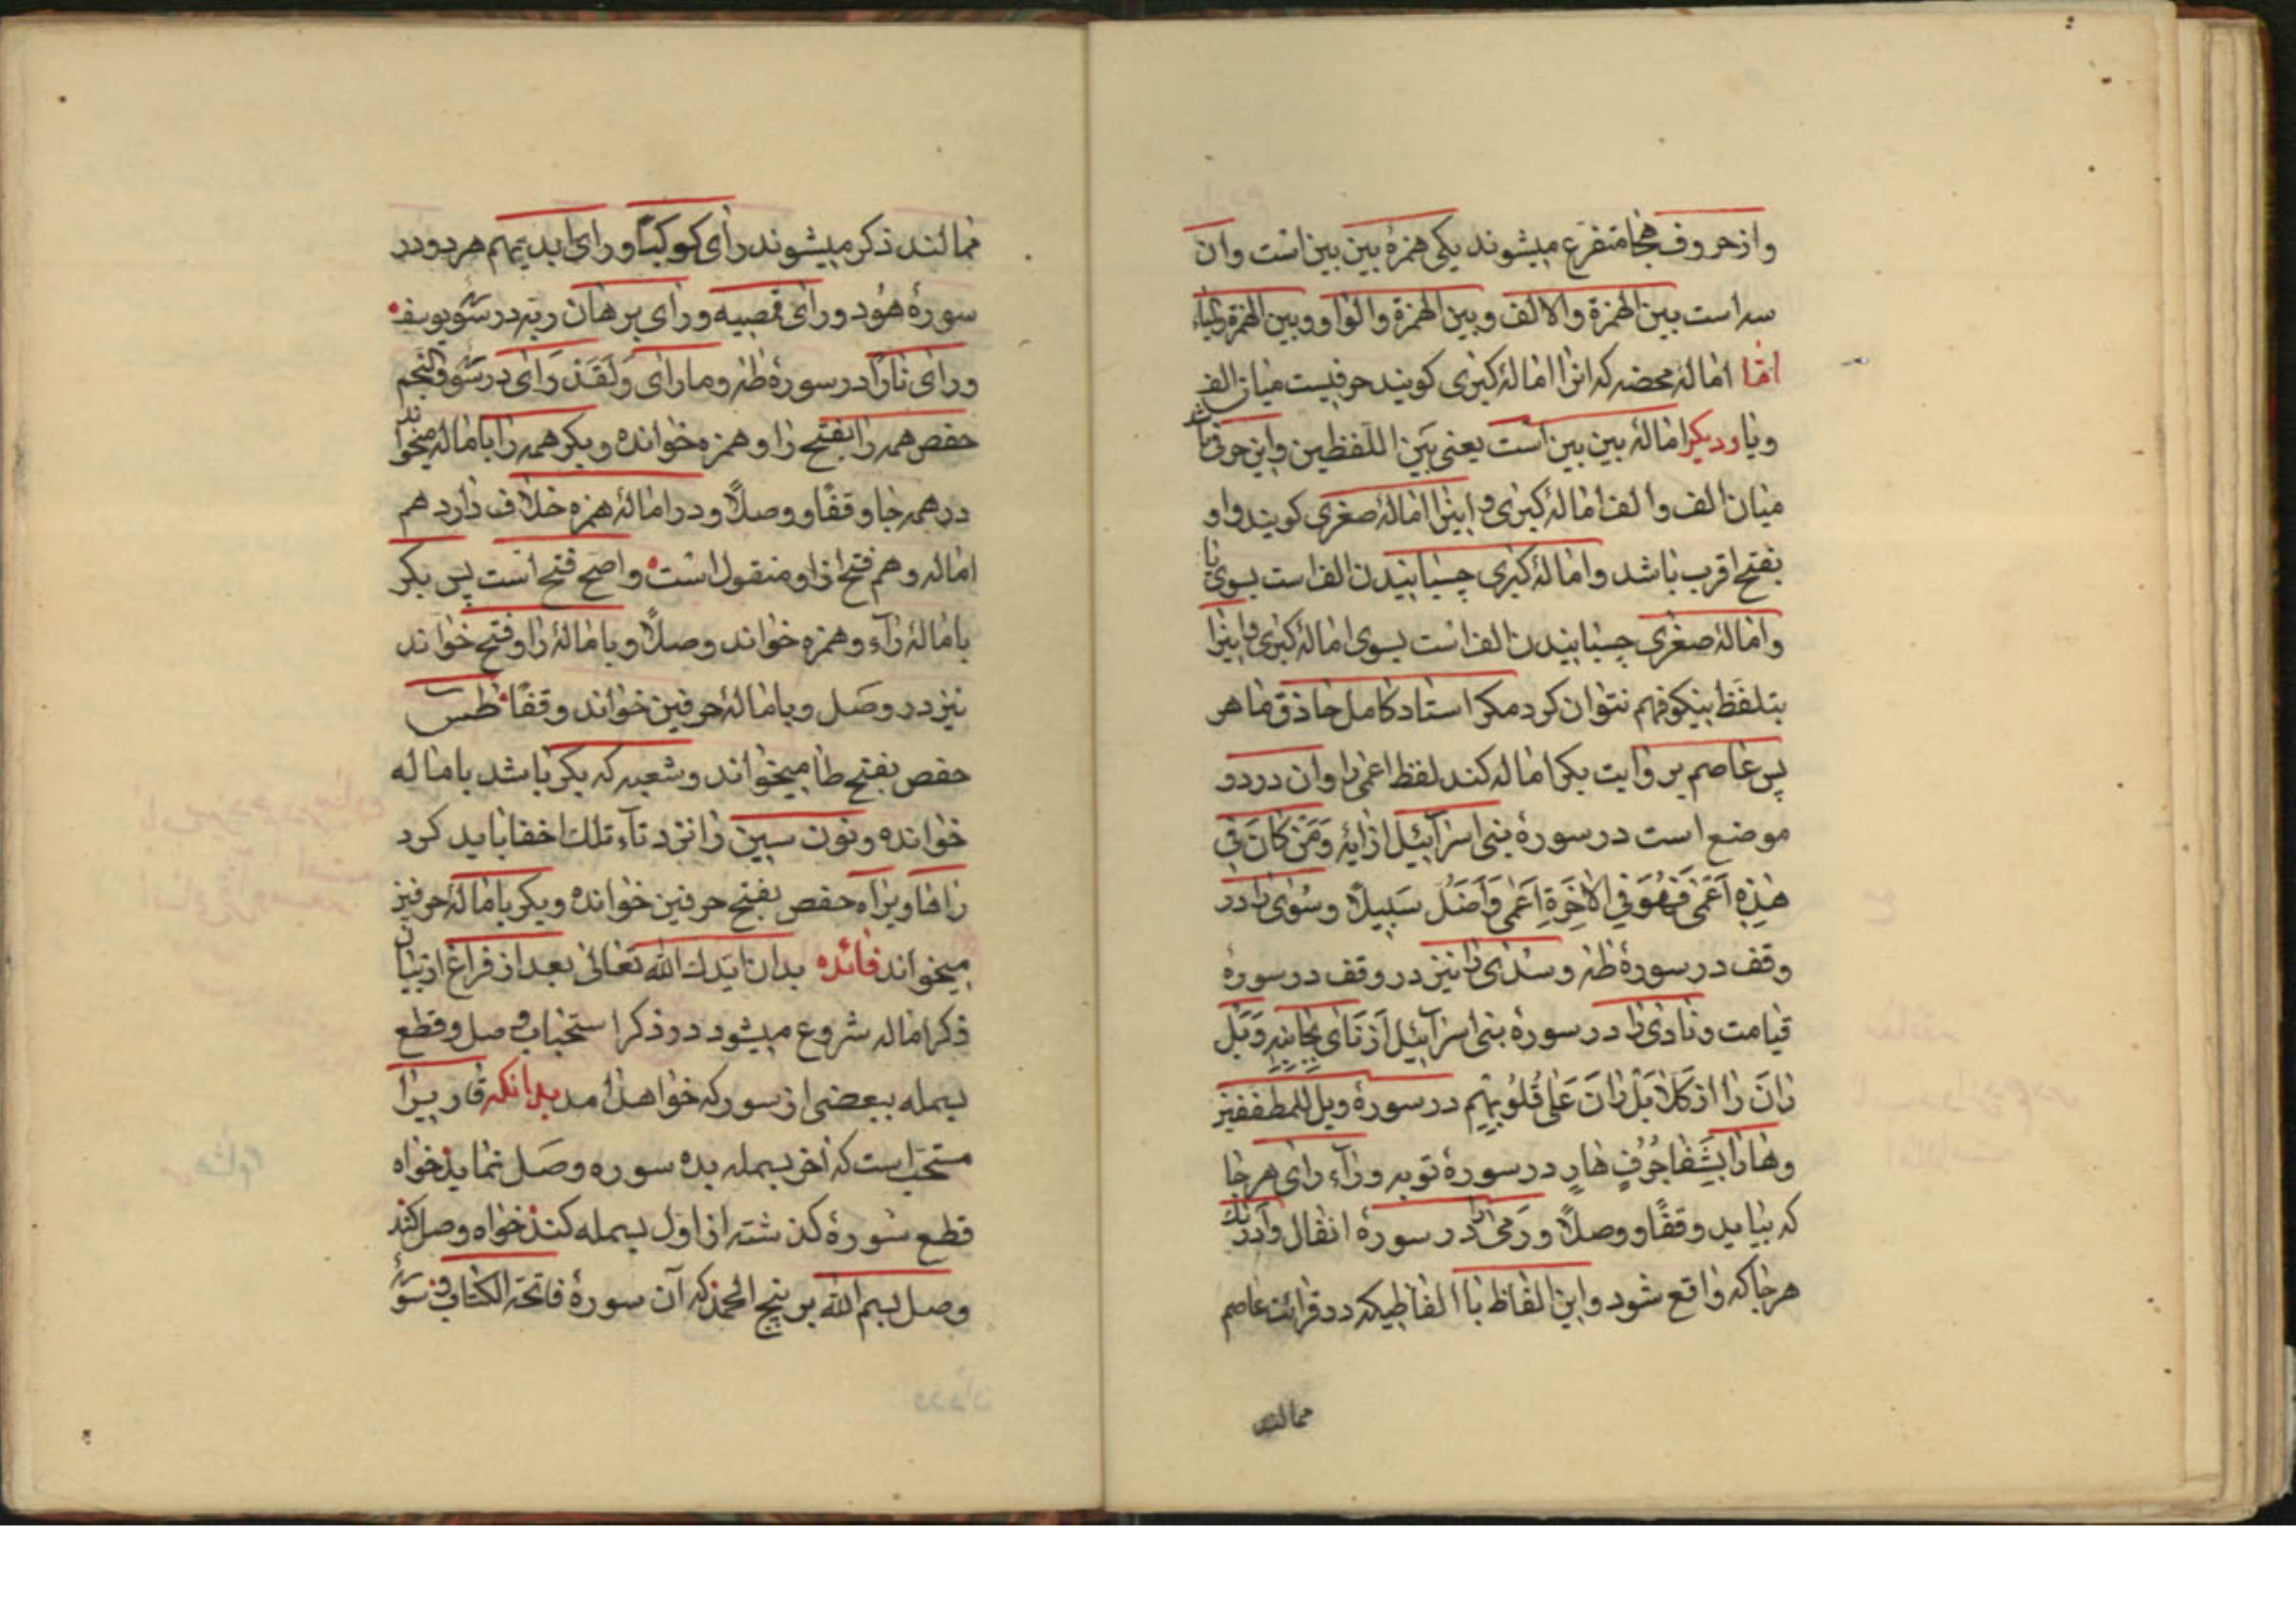 واز حروف هجا متفرع میشوند یکی همزهٔ بین بین است وان
سه است بین الهمزة والالف وبین الهمزة والواو وبین الهمزة والیاء
امّا امالهٔ محضه که انرا امالهٔ کبری کویند حرفیست میان الف
ویا ودیکر امالهٔ بین بین است یعنی بَین اللفظین واین حرفی باشد
میان الف والف امالهٔ کبری واینرا امالهٔ صغری کویند واو
بفتح اقرب باشد وامالهٔ کبری چسبانیدن الف است بسوی یا
وامالهٔ صغری چسبانیدن الف است بسوی امالهٔ کبری واینرا
بتلفّظ نیکو فهم نتوان کرد مکر استاد کامل حاذق ماهر
پس عاصم بر وایت بکر اماله کند لفظ اعمی را وان در دو
موضع است در سورهٔ بنی اسرآئیل از ایهٔ وَمَن کَانَ فِی
هٰذِهِ اَعْمٰی فَهُوَ فِی الاٰخِرَةِ اَعْمٰی وَاَضَلُّ سَبِیلًا وسُوًی را در
وقف در سورهٔ طٰه وسُدًی را نیز در وقف در سورهٔ
قیامت ونادی را در سورهٔ بنی اسرآئیل از نَاٰی بِجَانِبِهِ وَبَل
رانَ را از کَلَّا بَلْ رَانَ عَلٰی قُلُوبِهِم در سورهٔ ویل للمطففین
وهار را بشَفَا جُرُفٍ هَارٍ در سورهٔ توبه ورآء رای هر جا
که بیاید وقفًا ووصلًا ورَمٰی را در سورهٔ انفال وادرٰیک
هر جا که واقع شود واین الفاظ با الفاظیکه در قرائت عاصم
ممالند
ممالند ذکر میشوند رأی کوکبًا ورای ایدیهم هر دو در
سورهٔ هُود ورای قمیصه ورای برهان ربه در سورهٔ یوسف
ورای نارًا در سورهٔ طٰه وما رای وَلَقَد رَای در سورهٔ والنجم
حفص همه را بفتح را وهمزه خوانده وبکر همه را باماله میخواند
در همه جا وقفًا ووصلًا ودر امالهٔ همزه خلاف دارد هم
اماله وهم فتح از او منقول است واصح فتح است پس بکر
بامالهٔ رآء وهمزه خواند وصلًا وبامالهٔ را وفتح خواند
نیز در وصَل وبامالهٔ حرفین خواند وقفًا طٰس
حفص بفتح طا میخواند وشعبه که بکر باشد باماله
خوانده ونون سین را نزد تآء تلک اخفا باید کرد
راها وبراه حفص بفتح حرفین خوانده وبکر بامالهٔ حرفین
میخواند فائده بدان ایّدک الله تعالی بعد از فراغ از بیان
ذکر اماله شروع میشود در ذکر استحباب وصل وقطع
بسمله ببعضی از سور که خواهد امد بدانکه قاریرا
مستحبّ است که اخر بسمله بده سوره وصَل نماید خواه
قطع سورهٔ کذشته از اوّل بسمله کند خواه وصل کند
وصل بسم الله بر پنج الحمد که آن سورهٔ فاتحة الکتاب وسورهٔ